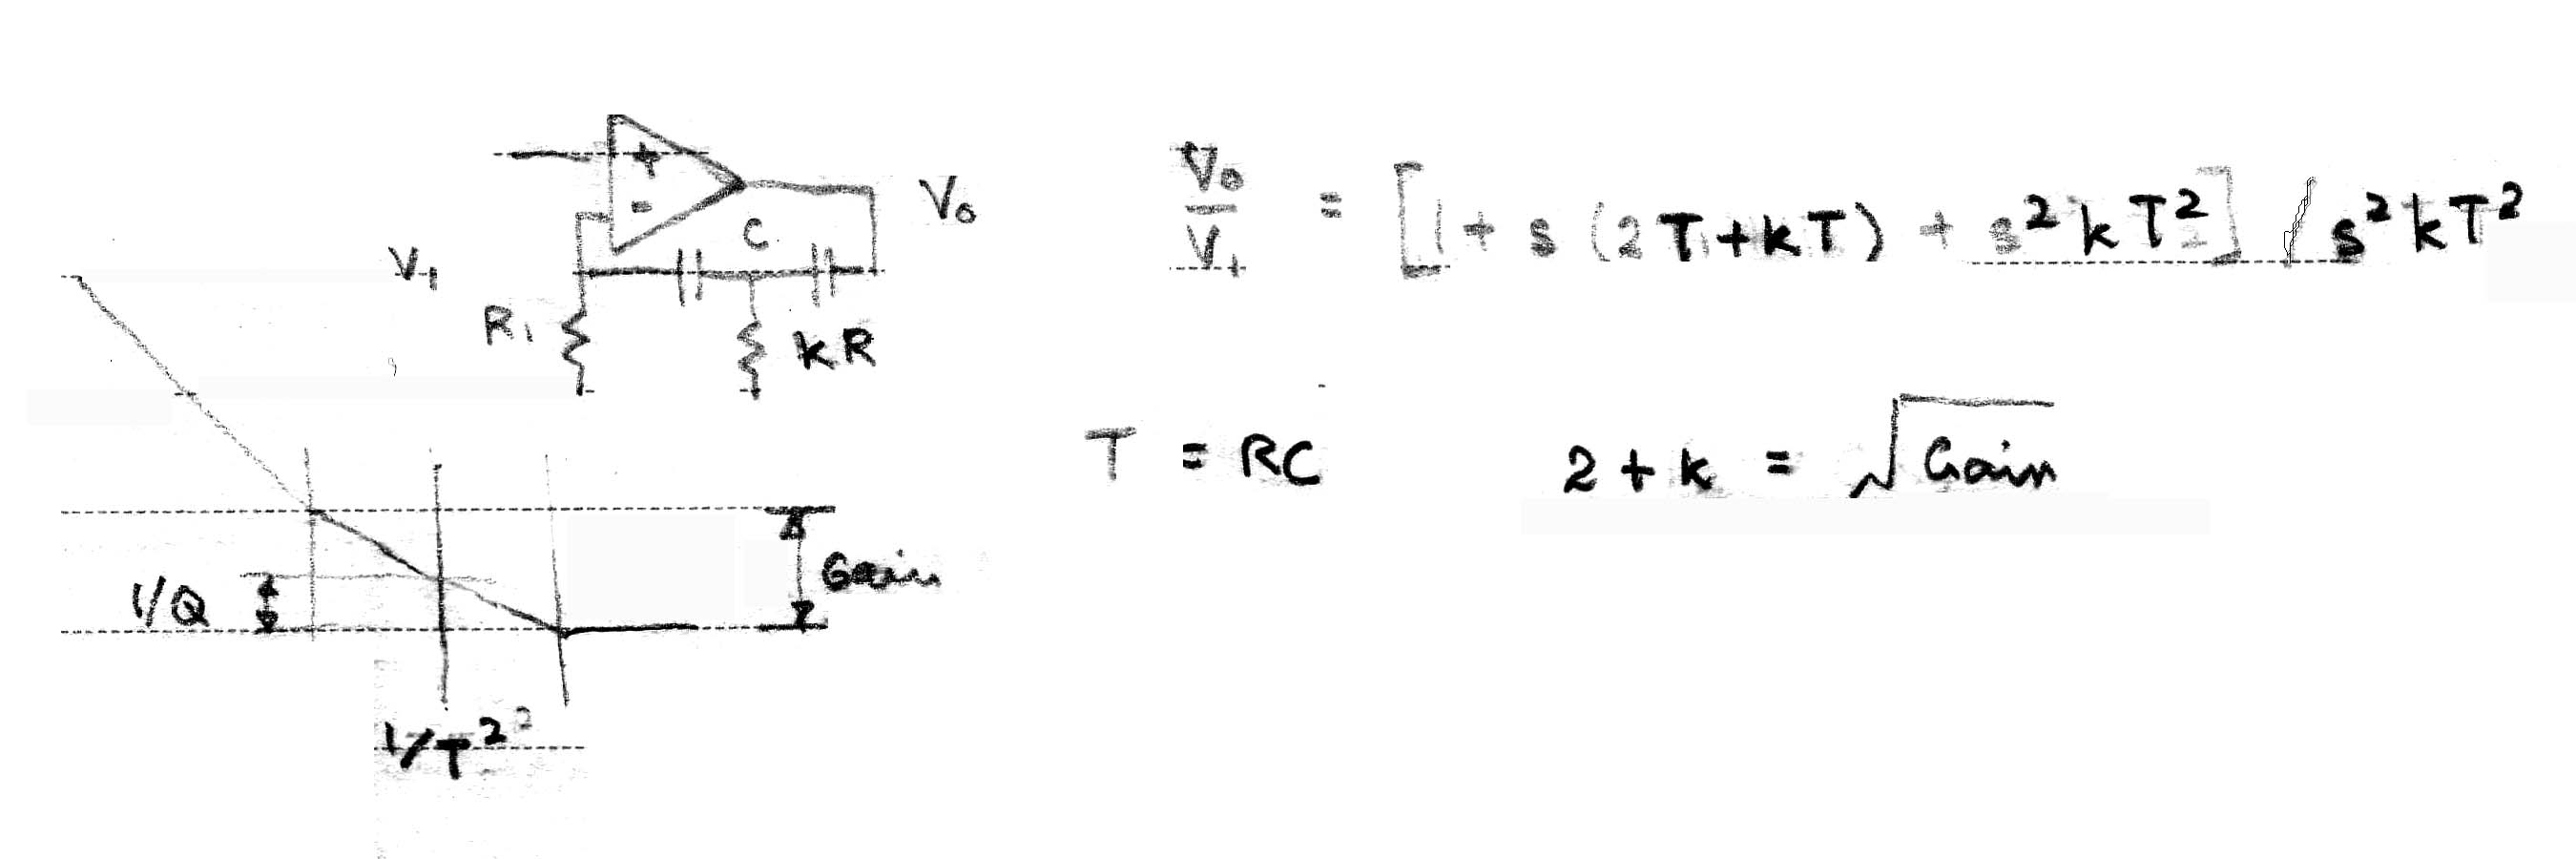 +
-
C
V₀
V₁
R₁
kR
V₀/V₁ = [1 + s (2T + kT) + s² k T²] / s² k T²
T = RC
2 + k = √Gain
Gain
1/Q
1/T²